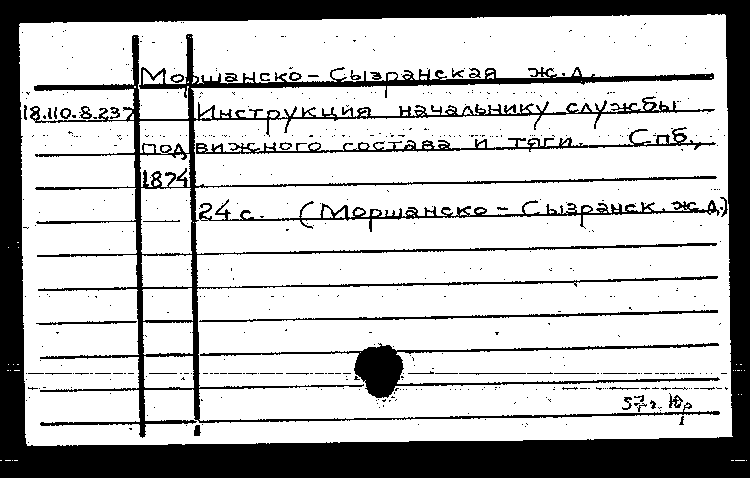 Моршанско-Сызранская ж.д.
18.110.8.237 Инструкция начальнику службы
подвижного состава и тяги. Спб.,
1874.
24 с. (Моршанско-Сызранск. ж.д.)
57 г.